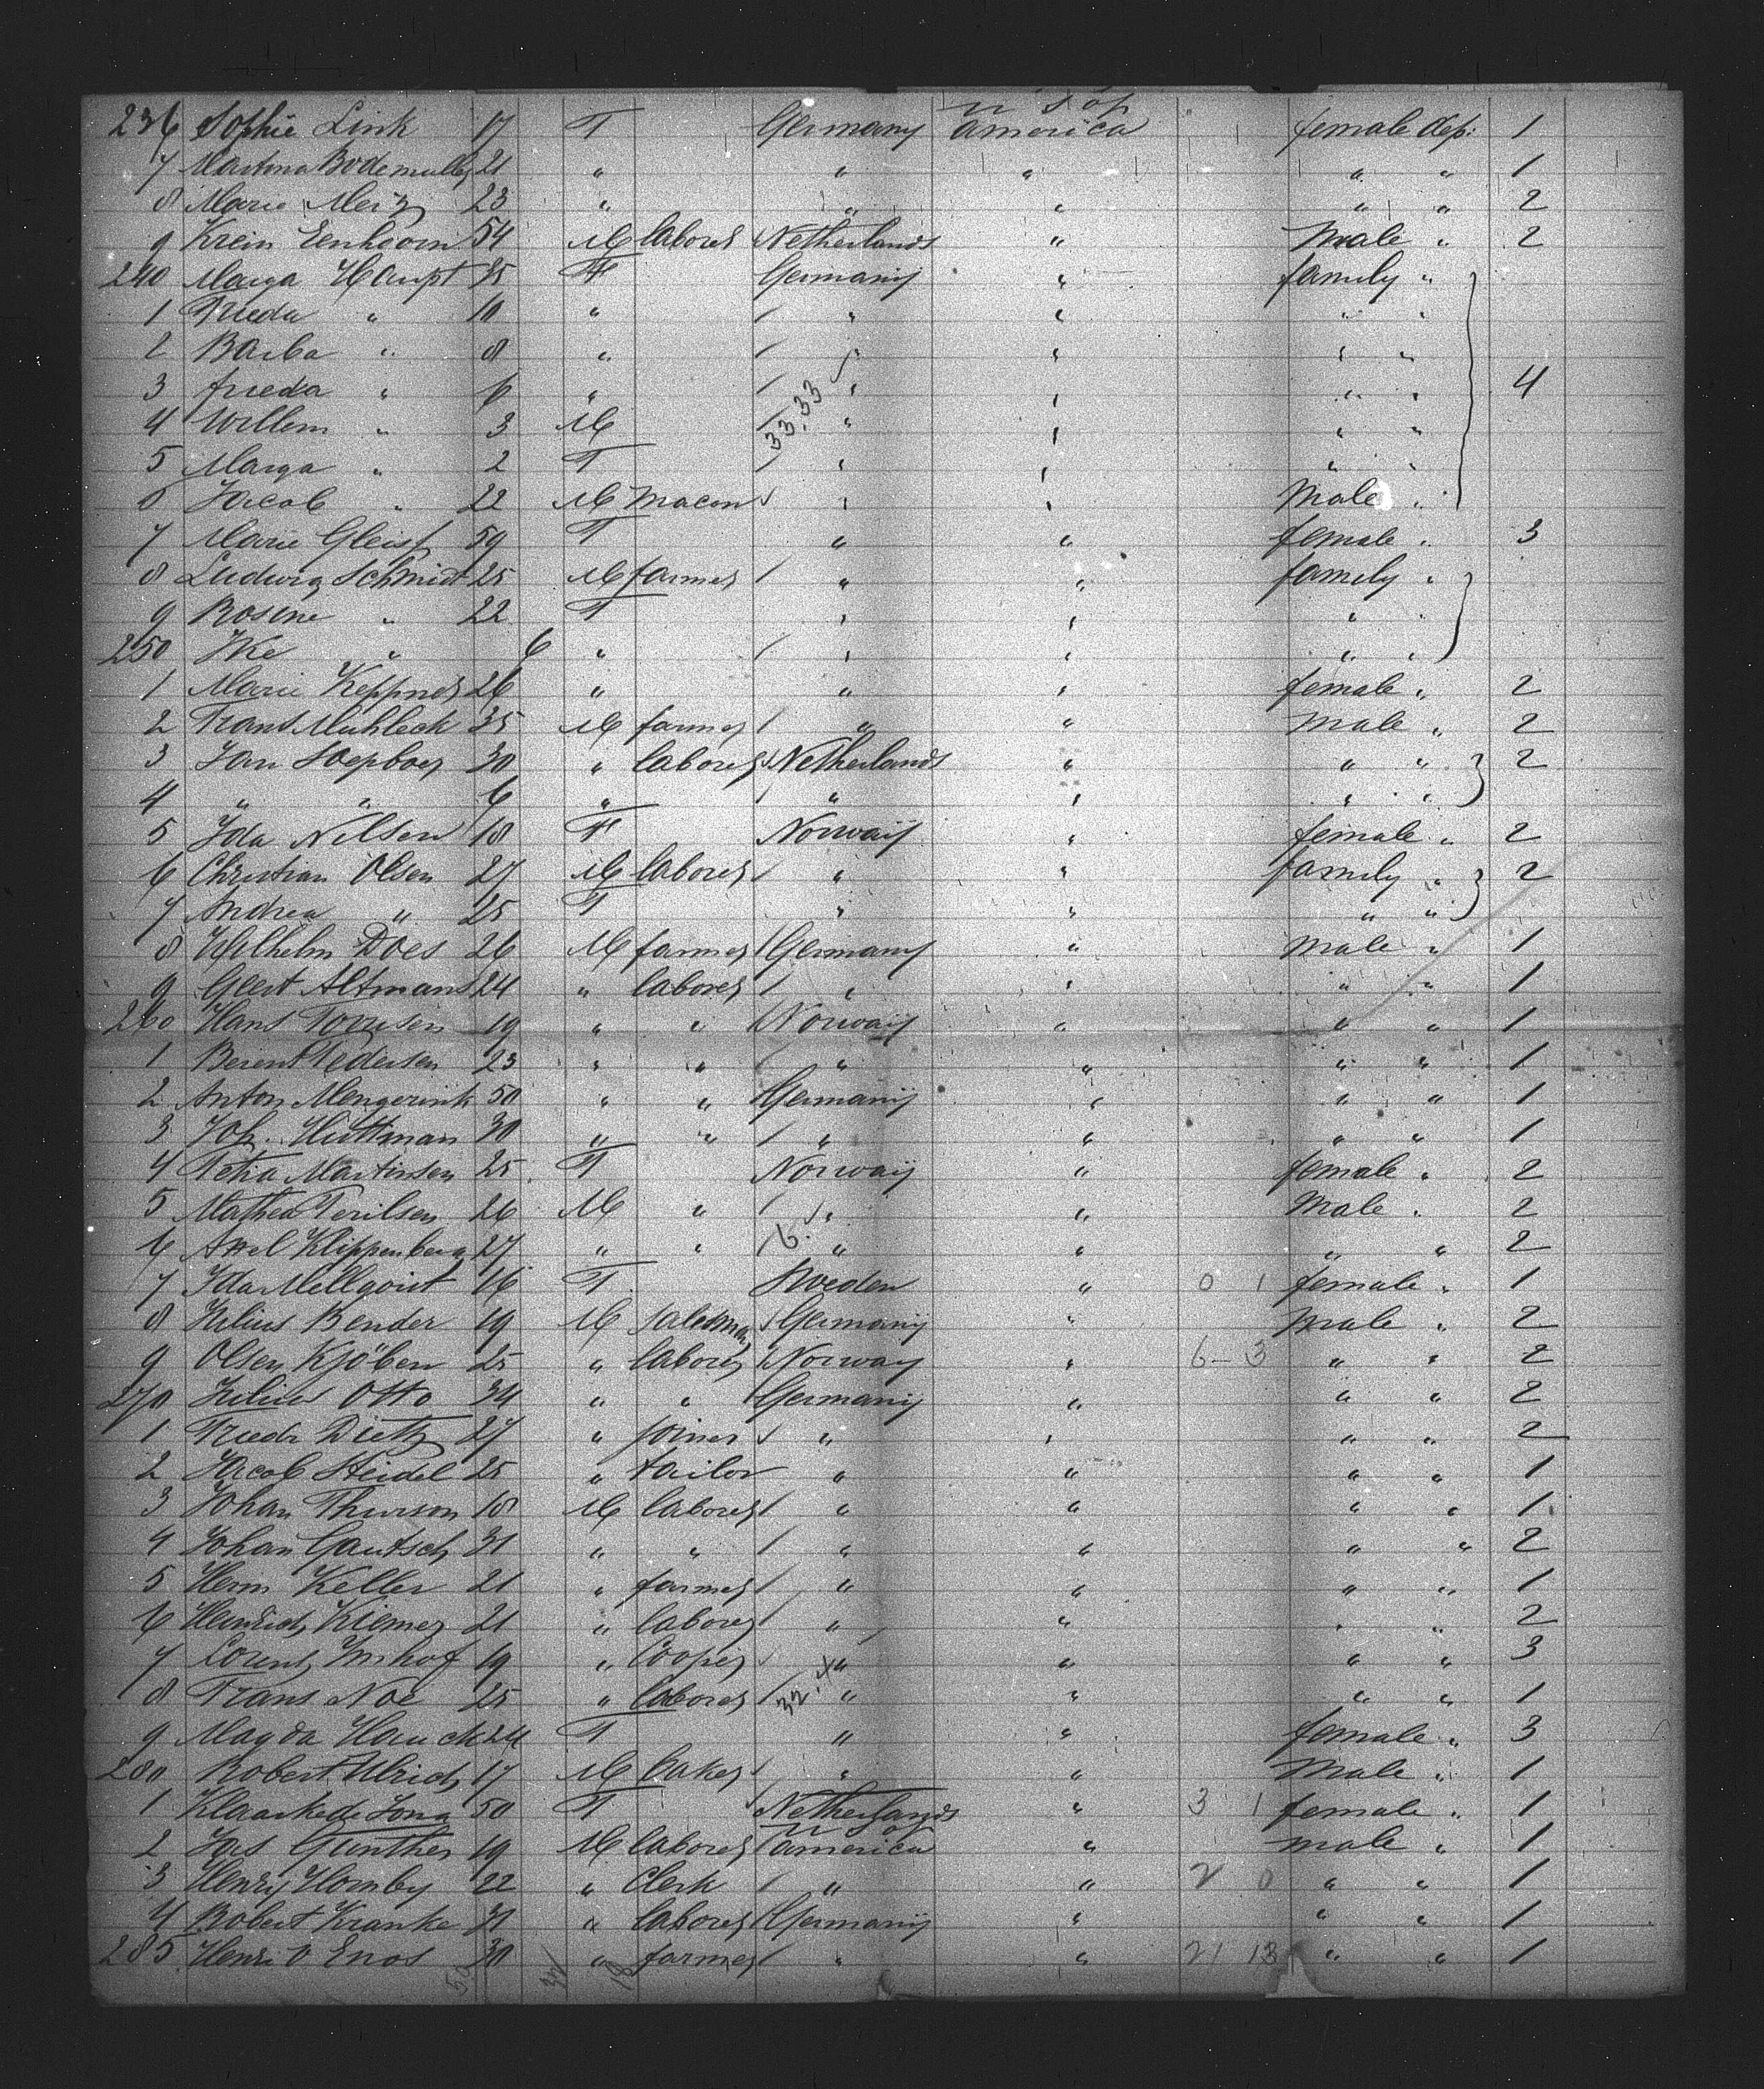 236 Sophie Link 17 F Germany U S of America female dep. 1
7 Martina Bodemuller 21 " " " " " 1
8 Marie Merz 23 " " " " " 2
9 Krein Eenhoorn 54 M labores Netherlands " Male " 2
240 Marga Haupt 35 F Germany " family "
1 Frieda " 10 " / " " " "
2 Barba " 8 " / " " " "
3 frieda " 6 " / " " " " 4
4 Willem " 3 M / 33.33 " " " "
5 Marga " 2 F / " " " "
6 Jacob " 22 M Macon / " " Male "
7 Marie Gleisf 59 F " " female " 3
8 Ludwig Schmidt 25 M farmer / " " family "
9 Rosine " 22 F " " "
250 Ike " 6 " / " " " "
1 Marie Keppner 26 " " " female " 2
2 Frans Muhleck 35 M farmer / " " Male " 2
3 Jan Soepboer 30 " laborer / Netherlands " " " 2
4 " " 6 " / " " " "
5 Ida Nilsen 18 F Norwaij " female " 2
6 Christian Olsen 27 M laborer / " " family " 2
7 Andrea " 25 F " " " "
8 Wilhelm Does 26 M farmer / Germany " Male " 1
9 Geert Altmans 24 " laborer / " " " " 1
260 Hans 19 " " / Norwaij " " " 1
1 Berent Pedersen 23 " " / " " " " 1
2 Anton Mengerink 50 " " / Germanij " " " 1
3 Joh. Huttman 30 " " / " " " " 1
4 Petra Martinsen 25 F Norwaij " female " 2
5 Mathea 26 M " / " " Male " 2
6 Axel Klippenberg 27 " " / 6. " " " " 2
7 Ida Mellqvist 16 F Sweden " 0 1 female " 1
8 Julius Bender 19 M salesman / Germanij " Male " 2
9 Olsen Kjöben 25 " laborer / Norway " 6 - 3 " " 2
270 Julius Otto 34 " " / Germanij " " " 2
1 Friedr Dietz 27 " joiner / " " " " 2
2 Jacob Heidel 25 " tailor " " " " 1
3 Johan Thurson 18 M laborer / " " " " 1
4 Johan Gautsch 31 " " / " " " " 2
5 Herm Keller 21 " farmer / " " " " 1
6 Heinrich Kiemer 21 " laborer / " " " " 2
7 Lorentz Imhof 19 " Cooper / " " " " 3
8 Frans Noe 25 " laborer / 32.4 " " " " 1
9 Magda Hauck 24 F " " female " 3
280 Robert Ulrich 17 M baker / " " Male " 1
1 Klaaske de Jong 50 F Netherlands " 3 1 female " 1
2 Jos Gunther 19 M laborer / U S of America " male " 1
3 Henry Hornby 22 " Clerk / " " 2 0 " " 1
4 Robert Kranke 31 " laborer / Germanij " " " 1
285 Henri V Enos 30 " farmer / " " 21 13 " " 1
50 32 18